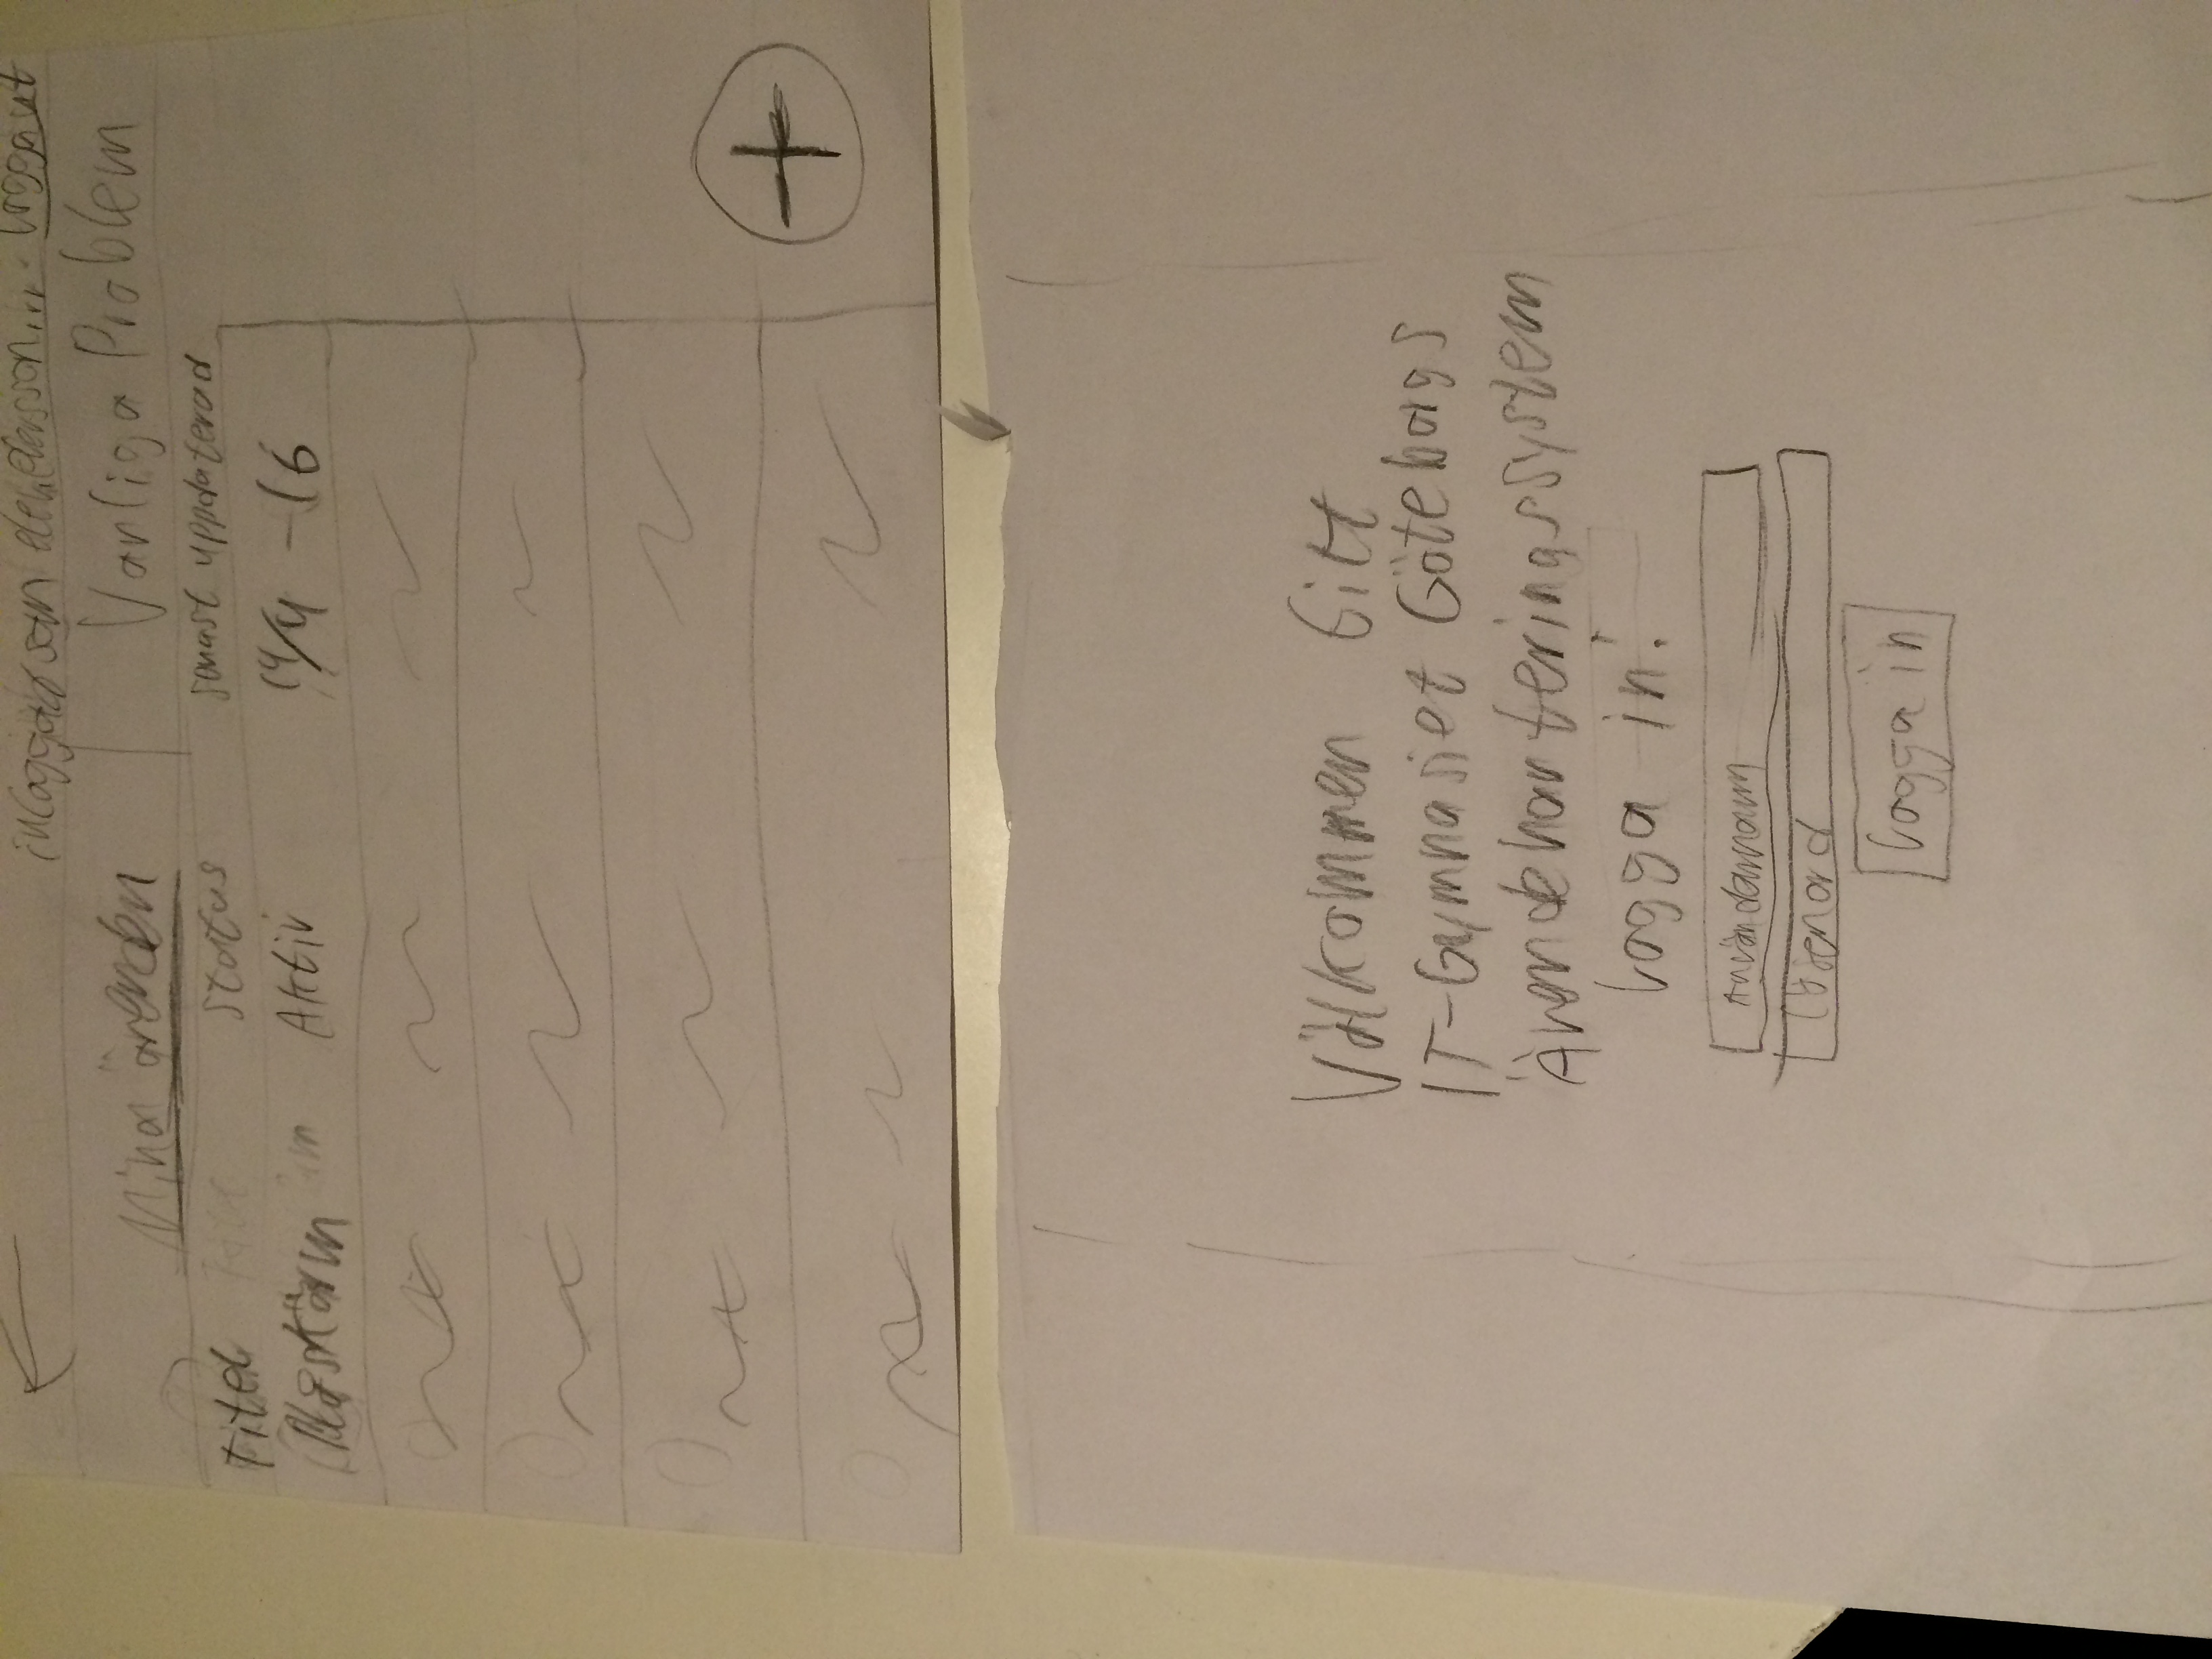 inloggad som elev.elevsson... Logga ut
Mina ärenden Vanliga Problem
Titel Status Senast uppdaterad
Blåskärm Aktiv 14/4 -16
Välkommen till
IT-Gymnasiet Göteborgs
Ärendehanteringssystem
Logga in!
Användarnamn
Lösenord
Logga in